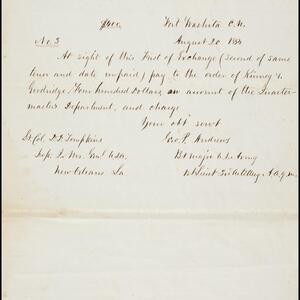 $400 Fort Washita C.N.
No. 3 August 20 1854
At sight of this First of Exchange (second of same
tenor and date unpaid) pay to the order of Kinney &
Goodridge, Four hundred Dollars, on account of the Quarter-
master's Department, and charge
Your obt servt
Lt Col. D. D. Tompkins Geo. P. Andrews
Dep. Qr Mr Genl USA. Bt Major U.S. Army
New Orleans La 1st Lieut 3rd Artillery A.A.Q.M.